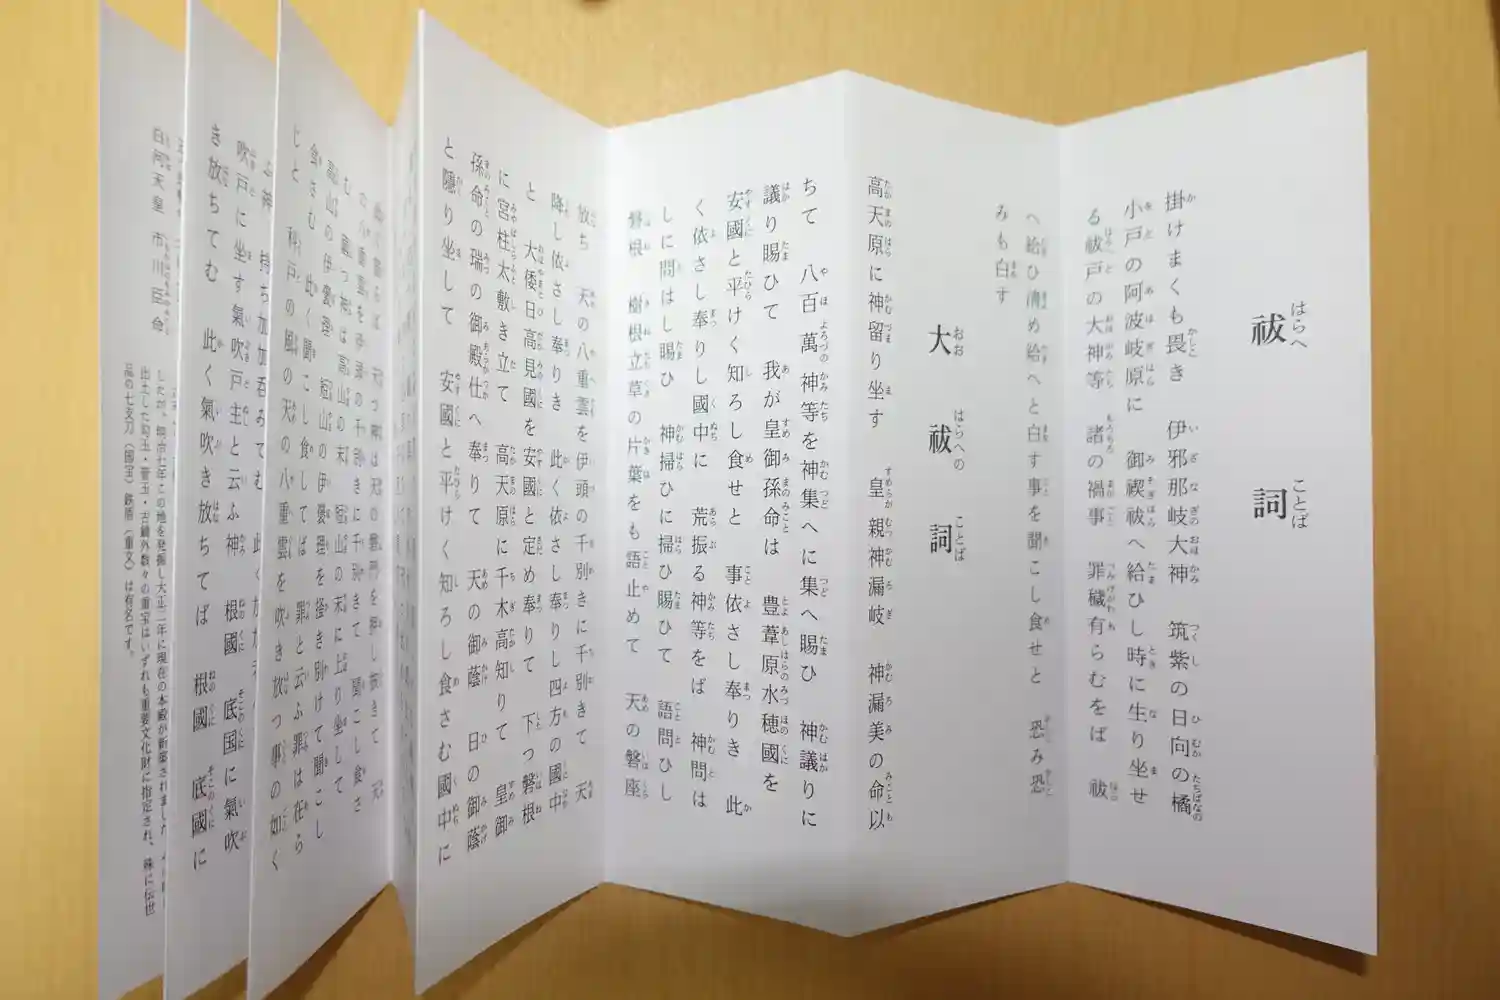 祓 詞
掛けまくも畏き 伊邪那岐大神 筑紫の日向の橘
小戸の阿波岐原に 御禊祓へ給ひし時に生り坐せ
る祓戸の大神等 諸の禍事 罪穢有らむをば 祓
へ給ひ清め給へと白す事を聞こし食せと 恐み恐
みも白す
大祓詞
高天原に神留り坐す 皇親神漏岐 神漏美の命以
ちて 八百萬神等を神集へに集へ賜ひ 神議りに
議り賜ひて 我が皇御孫命は 豊葦原水穂國を
安國と平けく知ろし食せと 事依さし奉りき 此
く依さし奉りし國中に 荒振る神等をば 神問は
しに問はし賜ひ 神掃ひに掃ひ賜ひて 語問ひし
磐根 樹根立草の片葉をも語止めて 天の磐座
放ち 天の八重雲を伊頭の千別きに千別きて 天
降し依さし奉りき 此く依さし奉りし四方の國中
と 大倭日高見國を安國と定め奉りて 下つ磐根
に宮柱太敷き立て 高天原に千木高知りて 皇御
孫命の瑞の御殿仕へ奉りて 天の御蔭 日の御蔭
と隱り坐して 安國と平けく知ろし食さむ國中に
の八重雲を伊頭の千別きに千別きて 聞こし食さ
む 國つ神は高山の末 短山の末に上り坐して
高山の伊褒理 短山の伊褒理を掻き別けて聞こし
食さむ 此く聞こし食してば 罪と云ふ罪は在ら
じと 科戸の風の天の八重雲を吹き放つ事の如く
ふ神 持ち加加呑みてむ
吹戸に坐す氣吹戸主と云ふ神 根國 底国に氣吹
き放ちてむ 此く氣吹き放ちてば 根國 底國に
白河天皇 市川臣命
したが、明治七年この地を発掘し大正二年に現在の本殿が新築されました。
出土した勾玉・管玉・古鏡外数々の重宝はいずれも重要文化財に指定され、殊に伝世
品の七支刀（国宝）鉄盾（重文）は有名です。